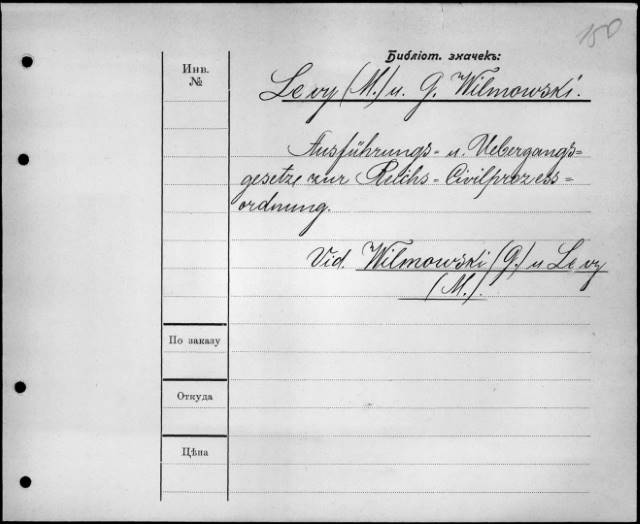 150
Библіот. значекъ:
Инв.
№
Levy (M.) u. G. Wilmowski.
Ausführungs- u. Uebergangs=
gesetze zur Reichs-Civilprozess=
ordnung.
Vid. Wilmowski (G.) u Levy
(M.).
По заказу
Откуда
Цѣна